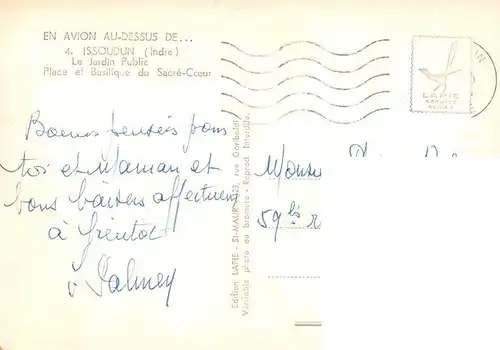 EN AVION AU-DESSUS DE...
4. ISSOUDUN (Indre)
Le Jardin Public
Place et Basilique du Sacré-Cœur
LAPIE
Bonnes pensées pour
toi et Maman et
bons baisers affectueux
à bientôt
Edition LAPIE - ST-MAUR 123, rue Garibaldi
Véritable photo au bromure - Reprod. Interdite.
59 bis